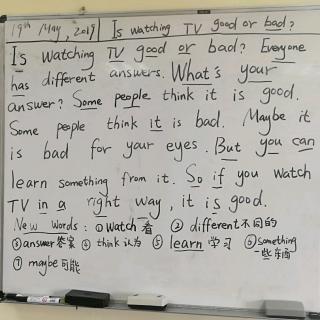 19th May, 2019 Is watching TV good or bad?
Is watching TV good or bad? Everyone
has different answers. What's your
answer? Some people think it is good.
Some people think it is bad. Maybe it
is bad for your eyes. But you can
learn something from it. So if you watch
TV in a right way, it is good.
New Words: ① watch 看 ② different 不同的
③ answer 答案 ④ think 认为 ⑤ learn 学习 ⑥ something 一些东西
⑦ maybe 可能